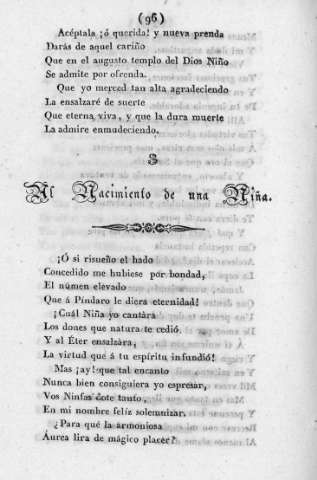 (96)
Acéptala ¡ó querida! y nueva prenda
Darás de aquel cariño
Que en el augusto templo del Dios Niño
Se admite por ofrenda.
Que yo merced tan alta agradeciendo
La ensalzaré de suerte
Que eterna viva, y que la dura muerte
La admire enmudeciendo.
Al Nacimiento de una Niña.
¡Ó si risueño el hado
Concedido me hubiese por bondad,
El númen elevado
Que á Píndaro le diera eternidad!
¡Cuál Niña yo cantára
Los dones que natura te cedió.
Y al Éter ensalzára,
La virtud que á tu espíritu infundió!
Mas ¡ay! que tal encanto
Nunca bien consiguiera yo espresar,
Vos Ninfas dote tanto,
En mi nombre felís solemnizar.
¿Para qué la armoniosa
Áurea lira de mágico placer?